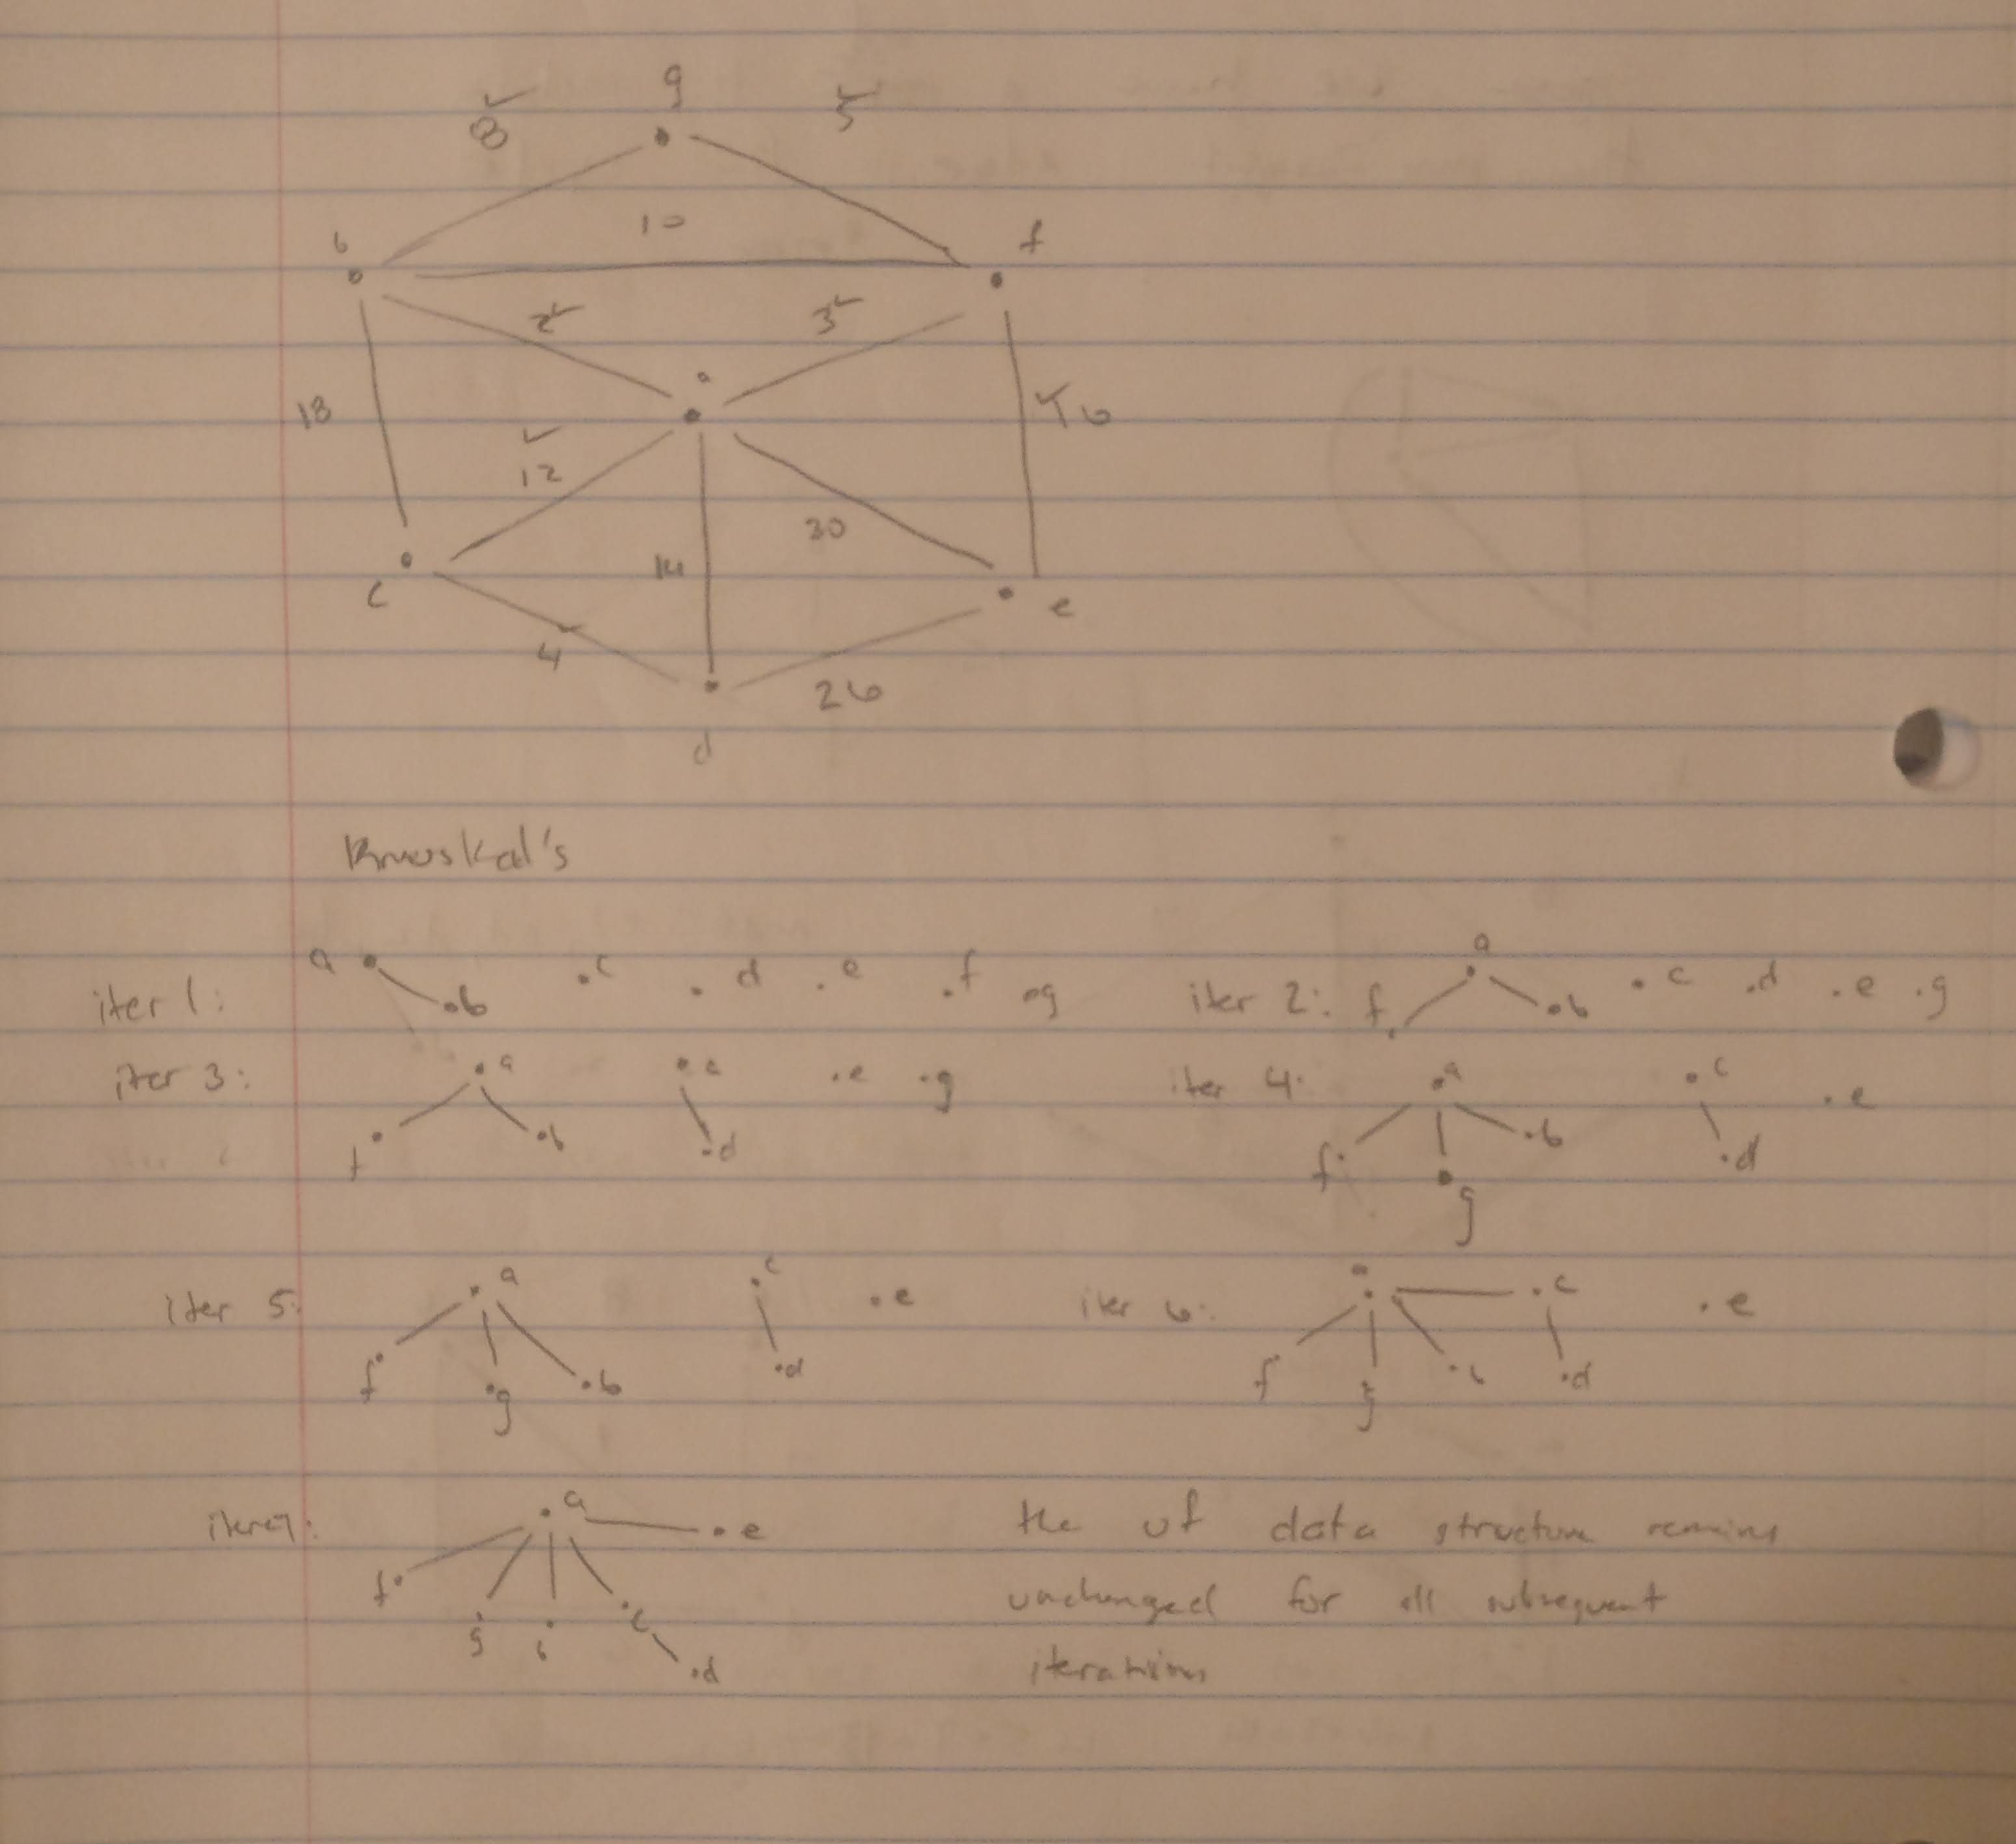 g
8 5
b 10 f
2 3
a
18 12 6
30
14
c e
4 26
d
Kruskal's
iter 1: a b c d e f g iter 2: f a b c d e g
iter 3: a f b c d e g iter 4: a f g b c d e
iter 5: a f g b c d e iter 6: a f g b c d e
iter 7: a e f g b c d
the uf data structure remains
unchanged for all subsequent
iterations